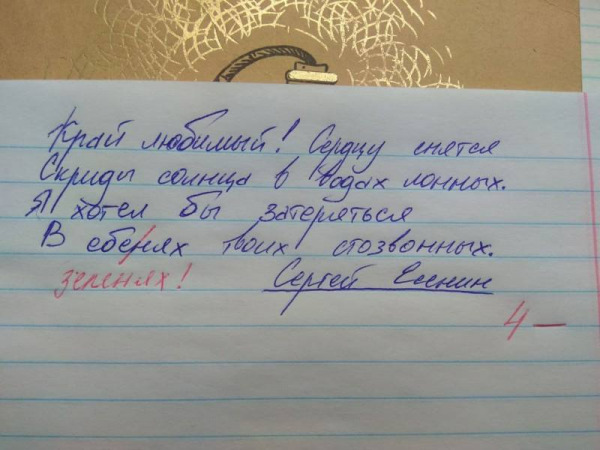 Край любимый! Сердцу снятся
Скирды солнца в водах лонных.
Я хотел бы затеряться
В ебенях твоих стозвонных.
зеленях!
Сергей Есенин
4-